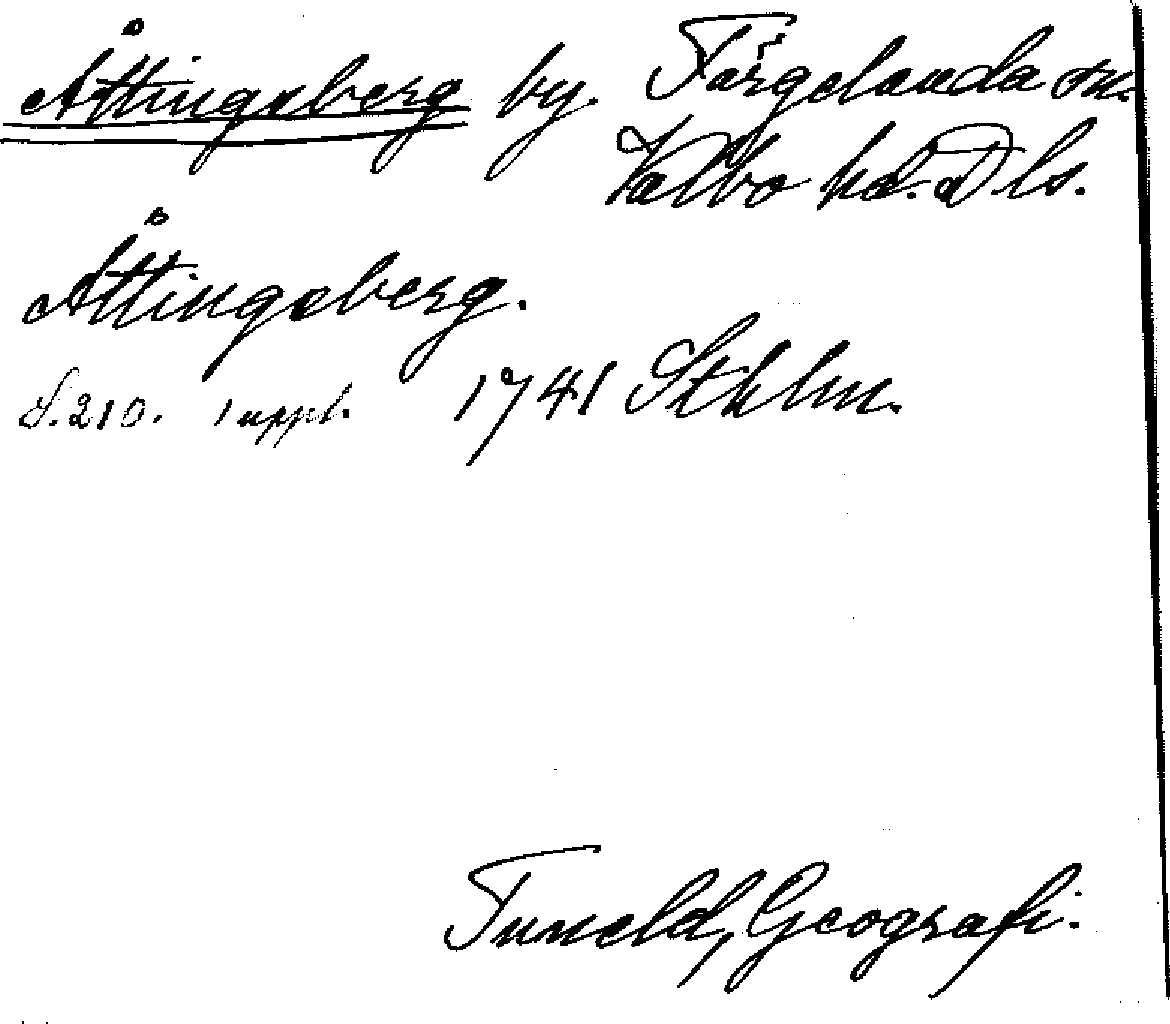 Åttingsberg by. Färgelanda sn.
Valbo hd. Dls.
Åttingsberg.
S. 210. 1 uppl. 1741 Sthlm.
Tuneld, Geografi.